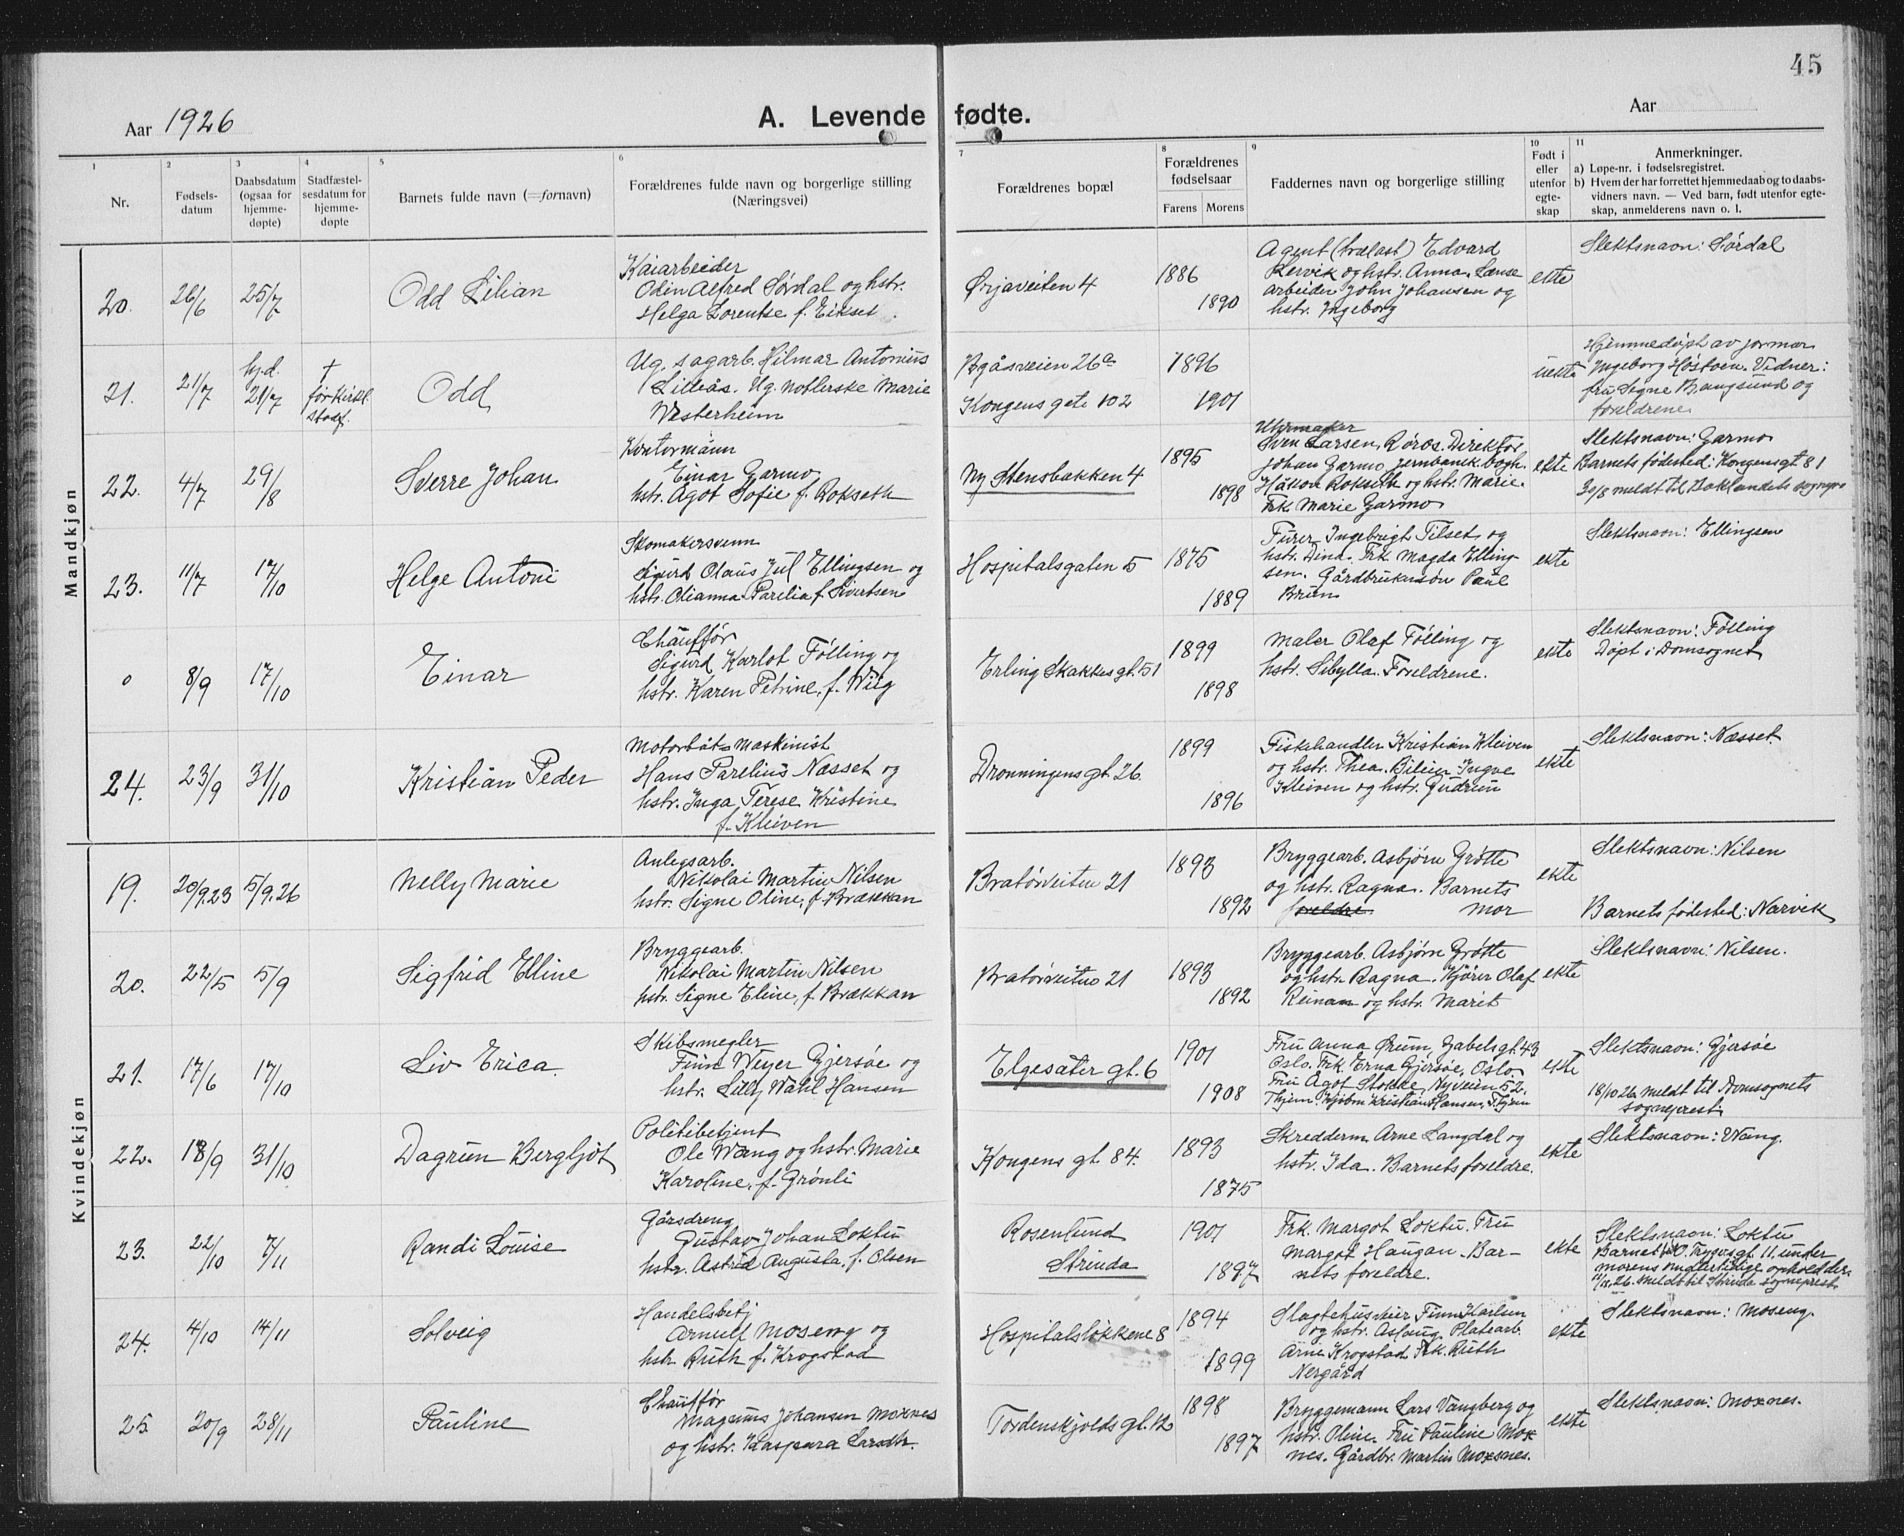 45
Aar 1926
A. Levende fødte.
Aar
1 2 3 4 5 6 7 8 9 10 11
Nr.
Fødsels-
datum
Daabsdatum
(ogsaa for
hjemme-
døpte)
Stadfæstel-
sesdatum for
hjemme-
døpte
Barnets fulde navn (=fornavn)
Forældrenes fulde navn og borgerlige stilling
(Næringsvei)
Forældrenes bopæl
Forældrenes
fødselsaar
Farens Morens
Faddernes navn og borgerlige stilling
Født i
eller
utenfor
egte-
skap
Anmerkninger.
a) Løpe-nr. i fødselsregistret.
b) Hvem der har forrettet hjemmedaab og to daabs-
vidners navn. — Ved barn, født utenfor egte-
skap, anmelderens navn o. l.
Mandkjøn
20. 26/6 25/7
Odd Lilian
Kaiarbeider
Odin Alfred Sørdal og hstr.
Helga Lorentse f. Eikset.
Ørjaveiten 4
1886
1890
Agent (trælast) Edvard
Lervik og hstr. Anna. Lænse
arbeider John Johansen og
hstr. Ingeborg
ekte
Slektsnavn: Sørdal
21. 21/7
hj.d.
21/7
†
før kirkl.
stadf.
Odd
Ug. sagarb. Hilmar Antonius
Lilleås. Ug. noterske Marie
Westerheim
Bgåsveien 26a
Kongens gate 102
1896
1901
uekte
Hjemmedøpt av jormor
Ingeborg Høstven. Vidner:
fru Signe Bangsund og
foreldrene
22. 4/7 29/8
Sverre Johan
Kontormann
Einar Garmo
hstr. Agot Sofie f. Rokseth
Ny Stensbakken 4
1895
1898
Uhrmaker
Sven Larsen, Røros. Direktør
Johan Garmo, jernbanek. bogh.
Håkon Rokseth og hstr. Marie.
Frk Marie Garmo
ekte
Slektsnavn: Garmo
Barnets fødested: Kongensgt 81
30/8 meldt til Baklandets sognepr.
23. 11/7 17/10
Helge Antoni
Skomakersvenn
Sigurd Olaus Jul Ellingsen og
hstr. Olianna Parelia f. Sivertsen
Hospitalsgaten 5
1875
1889
Furer Ingebrigt Tilset og
hstr. Dina. Frk Magda Elling
sen. Gårdbruker Paul
Bruun
ekte
Slektsnavn: Ellingsen
0 8/9 17/10
Einar
Chauffør
Sigurd Karlot Følling og
hstr. Karen Petrine, f. Wiig
Erling Skakkes gt. 51
1899
1898
Maler Olaf Følling og
hstr. Sibylla. Foreldrene.
ekte
Slektsnavn: Følling
Døpt i Domsognet
24. 23/9 31/10
Kristian Peder
Motorbåt-maskinist
Hans Parelius Næsset og
hstr. Inga Terese Kristine
f. Kleiven
Dronningens gt. 26
1899
1896
Fiskehandler Kristian Kleiven
og hstr. Thea. Bileier Ingve
Kleiven og hstr. Gudrun
ekte
Slektsnavn: Næsset
Kvindekjøn
19. 20/9.23 5/9.26
Nelly Marie
Anlegsarb.
Nikolai Martin Nilsen
hstr. Signe Oline, f. Brækkan
Bratørveiten 21
1893
1892
Bryggearb. Asbjørn Grøtte
og hstr. Ragna. Barnets
foreldre mor
ekte
Slektsnavn: Nilsen
Barnets fødested: Narvik
20. 22/5 5/9
Sigfrid Elline
Bryggearb.
Nikolai Martin Nilsen
hstr. Signe Eline, f. Brækkan
Bratørveiten 21
1893
1892
Bryggearb. Asbjørn Grøtte
og hstr. Ragna. Kjører Olaf
Reinan og hstr. Marit
ekte
Slektsnavn: Nilsen.
21. 17/6 17/10
Liv Erica.
Skibsmegler
Finn Weyer Gjersøe og
hstr. Lilly Wahl Hansen
Elgesæter gt. 6
1901
1908
Fru Anna Ørum, Gabelsgt. 43
Oslo. Frk. Erna Gjersøe, Oslo
Fru Agot Stokke, Nyveien 52.
Thjem. Kjøbm Kristian Hansen, Thjem
ekte
Slektsnavn: Gjersøe
18/10 26 meldt til Domsognets
sogneprest
22. 18/9 31/10
Dagrun Bergljot
Politibetjent
Ole Wang og hstr. Marie
Karoline, f. Grønli
Kongens gt. 84.
1893
1875
Skredderm. Arne Langdal og
hstr. Ida. Barnets foreldre.
ekte
Slektsnavn: Wang.
23. 22/10 7/11
Randi Louise
Gårsdreng
Gustav Johan Loktu
hstr. Astrid Augusta, f. Olsen
Rosenlund
Strinda
1901
1897
Frk. Margot Loktu. Fru
Margot Haugan. Bar-
nets foreldre.
ekte
Slektsnavn: Loktu
Barnet f. i O. Trygvs gt. 11. under
morens midlertidige ophold der.
meldt til Strinda sogneprest
24. 4/10 14/11
Solveig
Handelsbetj
Arnult Moseng og
hstr. Ruth f. Krogstad
Hospitalsløkkene 8
1894
1899
Slagtehuseier Finn Karlsen
og hstr. Aslaug. Platearb.
Arne Krogstad. Frk. Ruth
Nergård
ekte
Slektsnavn: Moseng.
25. 20/9 28/11
Pauline
Chauffør
Magnus Johansen Moxnes
og hstr. Kaspara Larsdtr.
Tordenskjolds gt. 12
1898
1897
Bryggemann Lars Vangberg og
hstr. Oline. Fru Pauline Mox
nes. Gårdbr. Martin Moxsnes.
ekte
Slektsnavn: Moxnes.